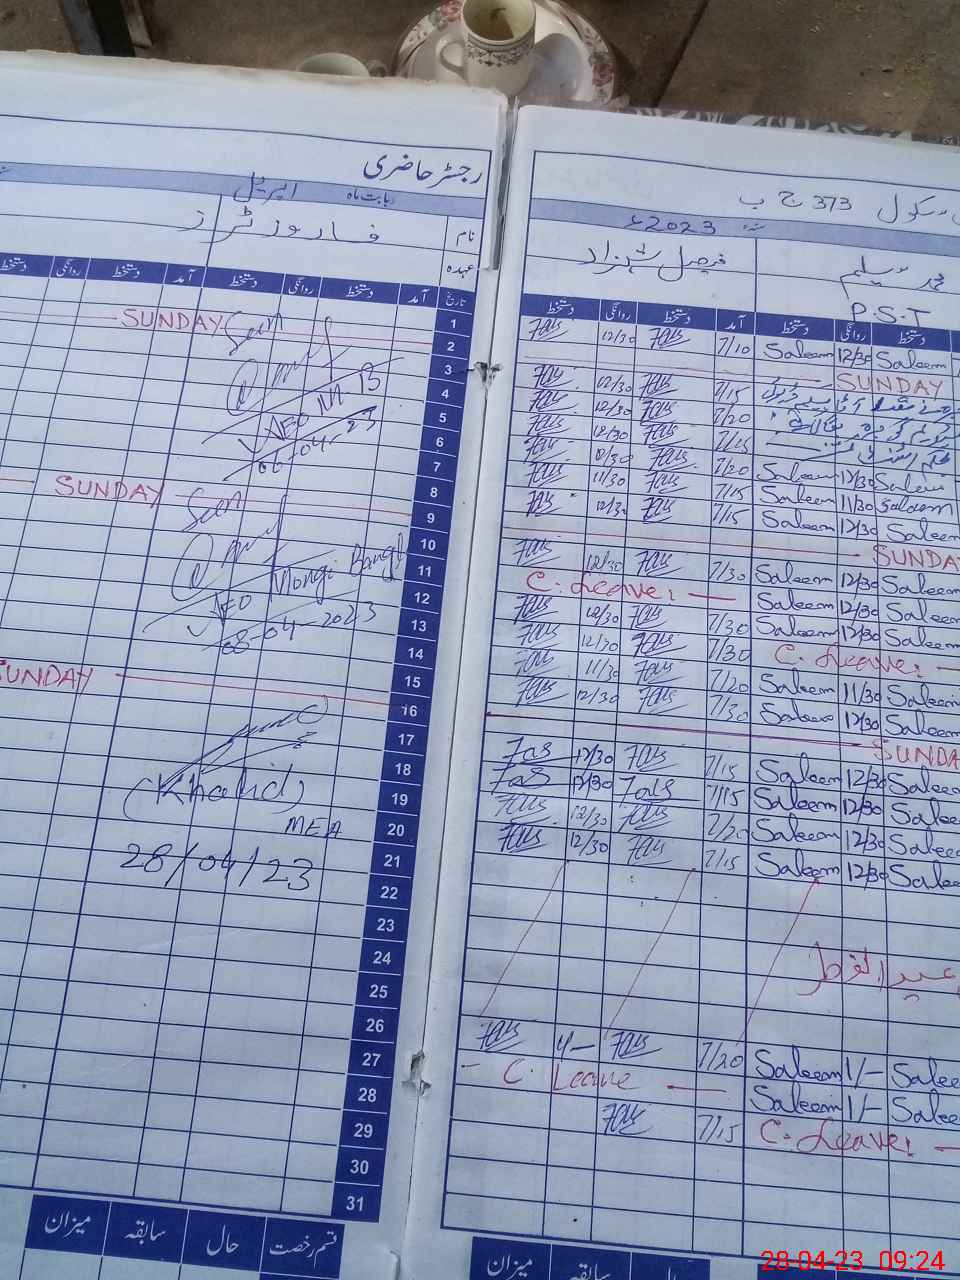 رجسٹر حاضری
بابت ماہ اپریل
نام
عہدہ
دستخط روانگی دستخط آمد دستخط روانگی دستخط آمد تاریخ
1
SUNDAY Seen 2
3
4
VEO M B 5
06-04-23 6
7
8
SUNDAY 9
Seen 10
11
AEO Mongi Bangl 12
08-04-2023 13
14
15
SUNDAY 16
17
18
Khalid 19
MEA 20
28/04/23 21
22
23
24
25
26
27
28
29
30
31
میزان سابقہ حال قسم رخصت
سکول 373 ج ب
2023ء
فیصل شہزاد محمد سلیم
P.S.T
دستخط روانگی دستخط آمد دستخط روانگی دستخط
Fas 12/30 Fas 7/10 Saleem 12/30 Saleem
SUNDAY
Fas 12/30 Fas 7/15
Fas 12/30 Fas 7/20
Fas 12/30 Fas 7/15
Fas 12/30 Fas 7/20 Saleem 12/30 Saleem
Fas 11/30 Fas 7/15 Saleem 11/30 Saleem
Fas 12/30 Fas 7/15 Saleem 12/30 Saleem
SUNDA
Fas 12/30 Fas 7/30 Saleem 12/30 Saleem
C. Leave Saleem 12/30 Saleem
Fas 12/30 Fas 7/30 Saleem 12/30 Saleem
Fas 12/30 Fas 7/30 C. Leave
Fas 11/30 Fas 7/20 Saleem 11/30 Saleem
Fas 12/30 Fas 7/30 Saleem 12/30 Saleem
SUNDA
Fas 12/30 Fas 7/15 Saleem 12/30 Saleem
Fas 12/30 Fas 7/15 Saleem 12/30 Saleem
Fas 12/30 Fas 7/20 Saleem 12/30 Salee
Fas 12/30 Fas 7/15 Saleem 12/30 Salee
عید الفطر
Fas 1/- Fas 7/20 Saleem 1/- Salee
C. Leave Saleem 1/- Salee
Fas 7/15 C. Leave
میزان سابقہ
28-04-23 09:24